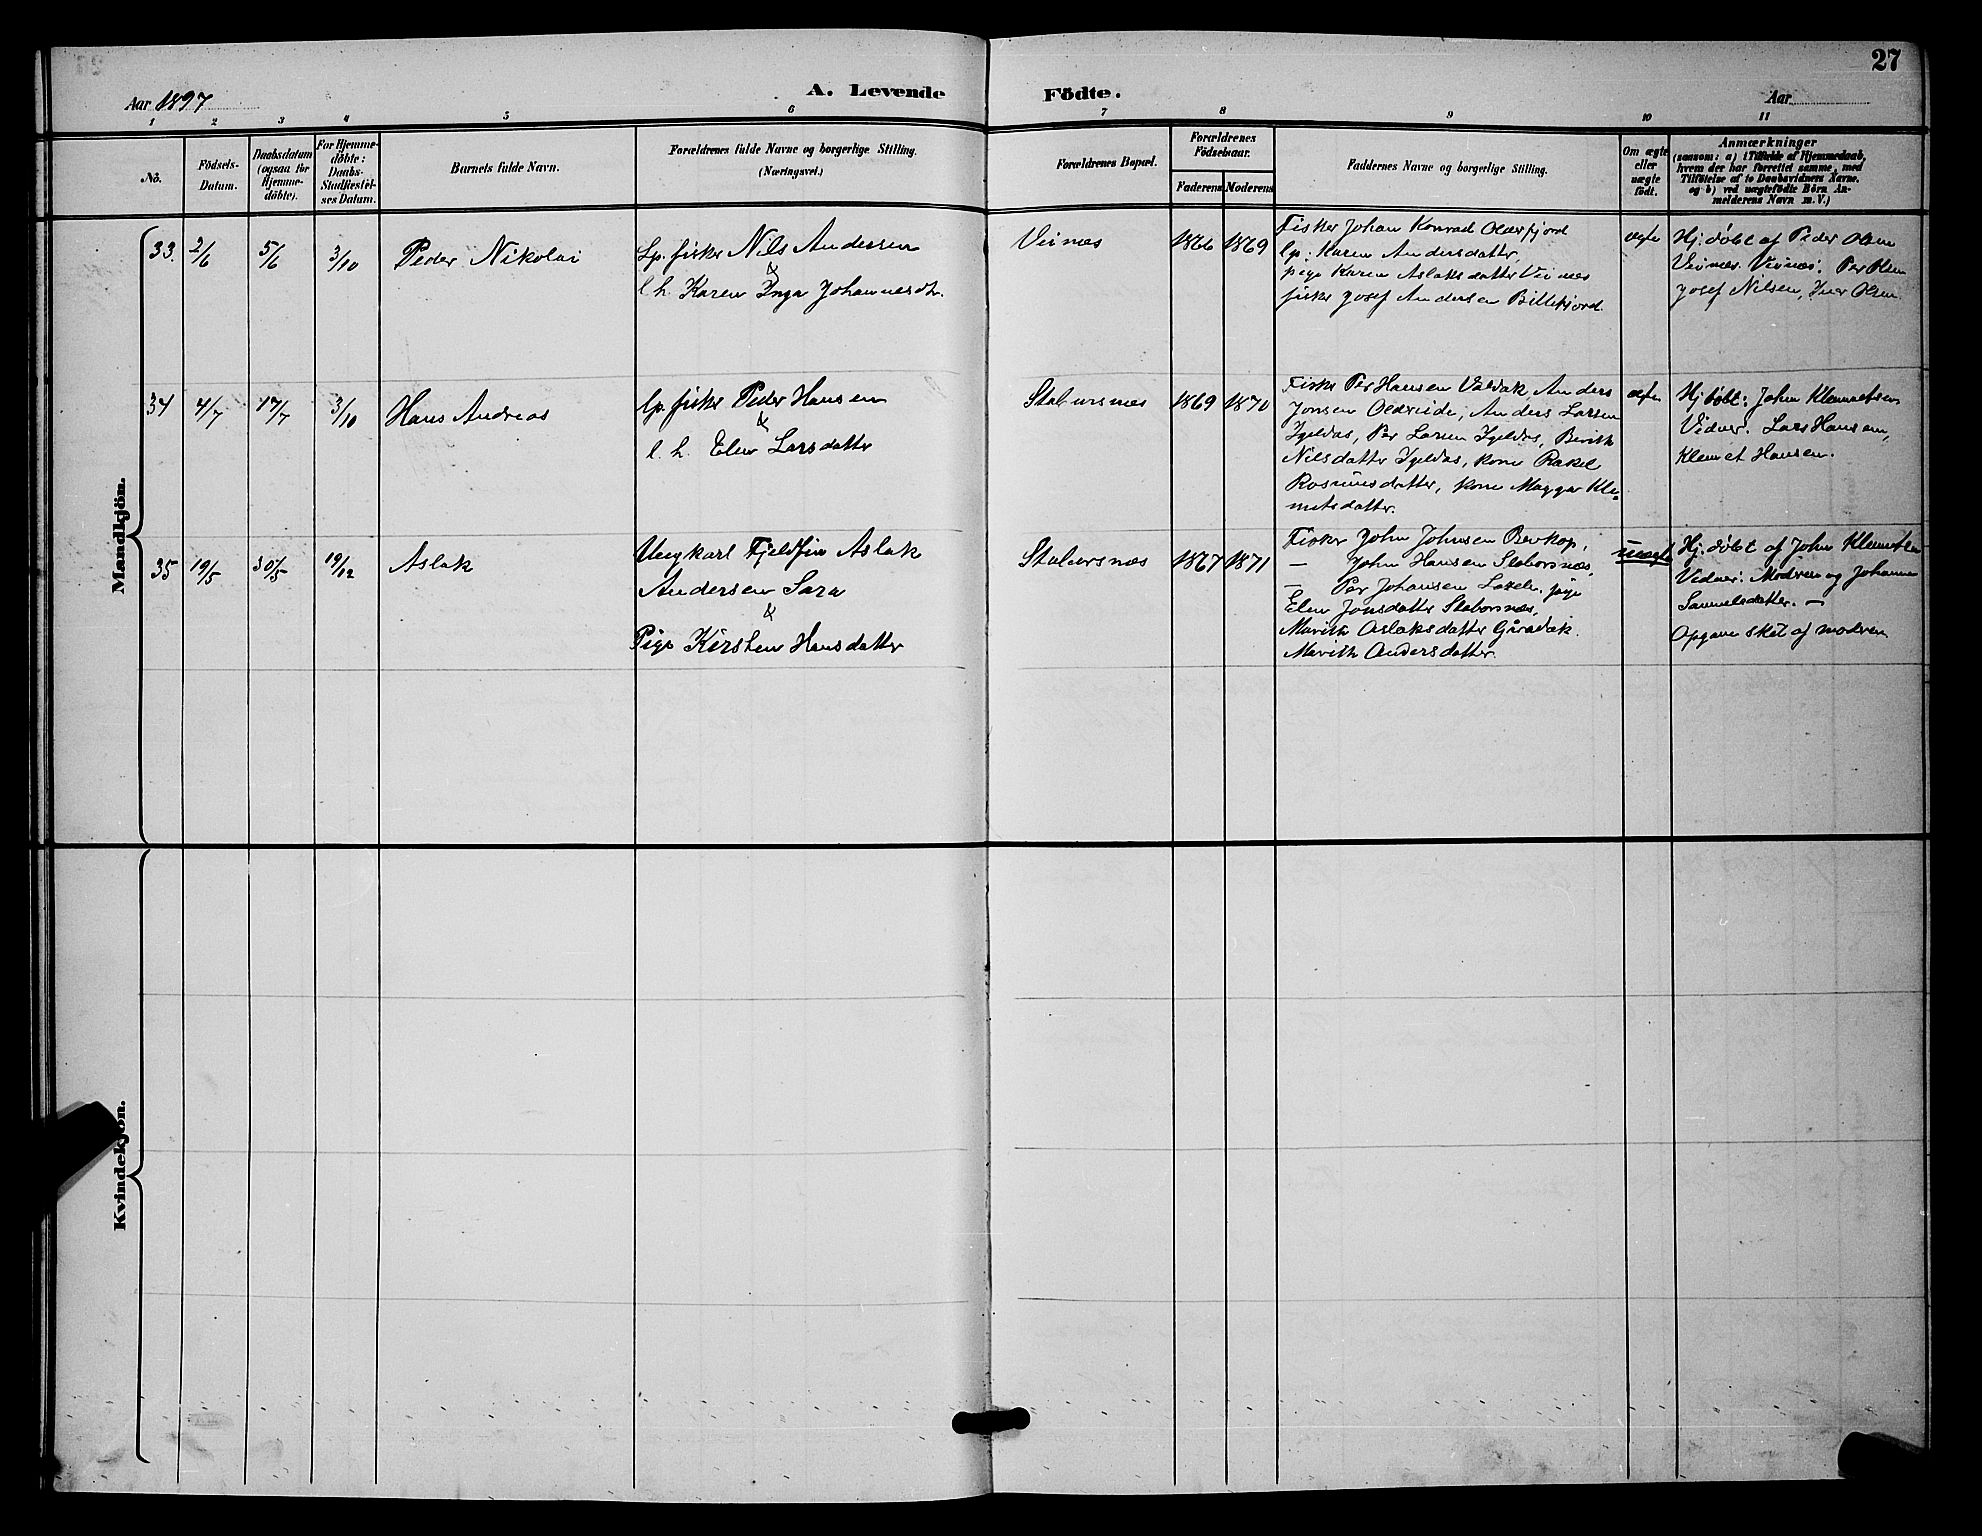 27
Aar 1897
A. Levende Födte.
Aar
1 2 3 4 5 6 7 8 9 10 11
No.
Födsels-Datum.
Daabsdatum (ogsaa for Hjemme-döbte).
For Hjemme-döbte: Daabs-Stadfæstel-ses Datum.
Barnets fulde Navn.
Forældrenes fulde Navne og borgerlige Stilling. (Næringsvei.)
Forældrenes Bopæl.
Forældrenes Födselsaar.
Faderens Moderens
Faddernes Navne og borgerlige Stilling.
Om ægte eller uægte födt.
Anmærkninger
(saasom: a) i Tilfælde af Hjemmedaab, hvem der har forrettet samme, med Tilföielse af to Daabsvidners Navne, og b) ved uægtefödte Börn Anmelderens Navn m. V.)
Mandkjön.
33. 2/6 5/6 3/10 Peder Nikolai
Lp. fisker Nils Andersen
&
l. h. Karen Inga Johannesdtr.
Veinæs
1866 1869
Fisker Johan Konrad Olderfjord
lp: Karen Andersdatter,
pige Karen Aslaksdatter Veinæs
fisker Josef Andersen Billefjord.
ægte
Hj. döbt af Peder Olsen
Veinæs. Veinæs: Per Olsen
Josef Nilsen, Iver Olsen.
34 4/7 17/7 3/10 Hans Andreas
lp. fisker Peder Hansen
&
l. h. Elen Larsdatter
Stabursnæs
1869 1870
Fisker Per Hansen Valdak Anders
Jonsen Oldereide, Anders Larsen
Igeldas, Per Larsen Igeldas, Berith
Nilsdatter Igeldas, kone Rakel
Rasmusdatter, kone Magga Kle-
metsdatter.
ægte
Hj. döbt: John Klemetsen
Vidner: Lars Hansen,
Klemet Hansen.
35 19/5 30/5 19/12 Aslak
Ungkarl Fjeldfin Aslak
Andersen Sara
&
Pige Kirsten Hansdatter
Stabursnæs
1867 1871
Fisker John Johnsen
— John Hansen Staborsnæs,
— Per Johansen pige
Elen Jonsdatter Staborsnæs,
Marith Aslaksdatter
Marith Andersdatter.
uægte
Hj. döbt af John Klemetsen
Vidner: Modren og Johanna
Samuelsdatter. —
Opgave sket af modren
Kvindekjön.